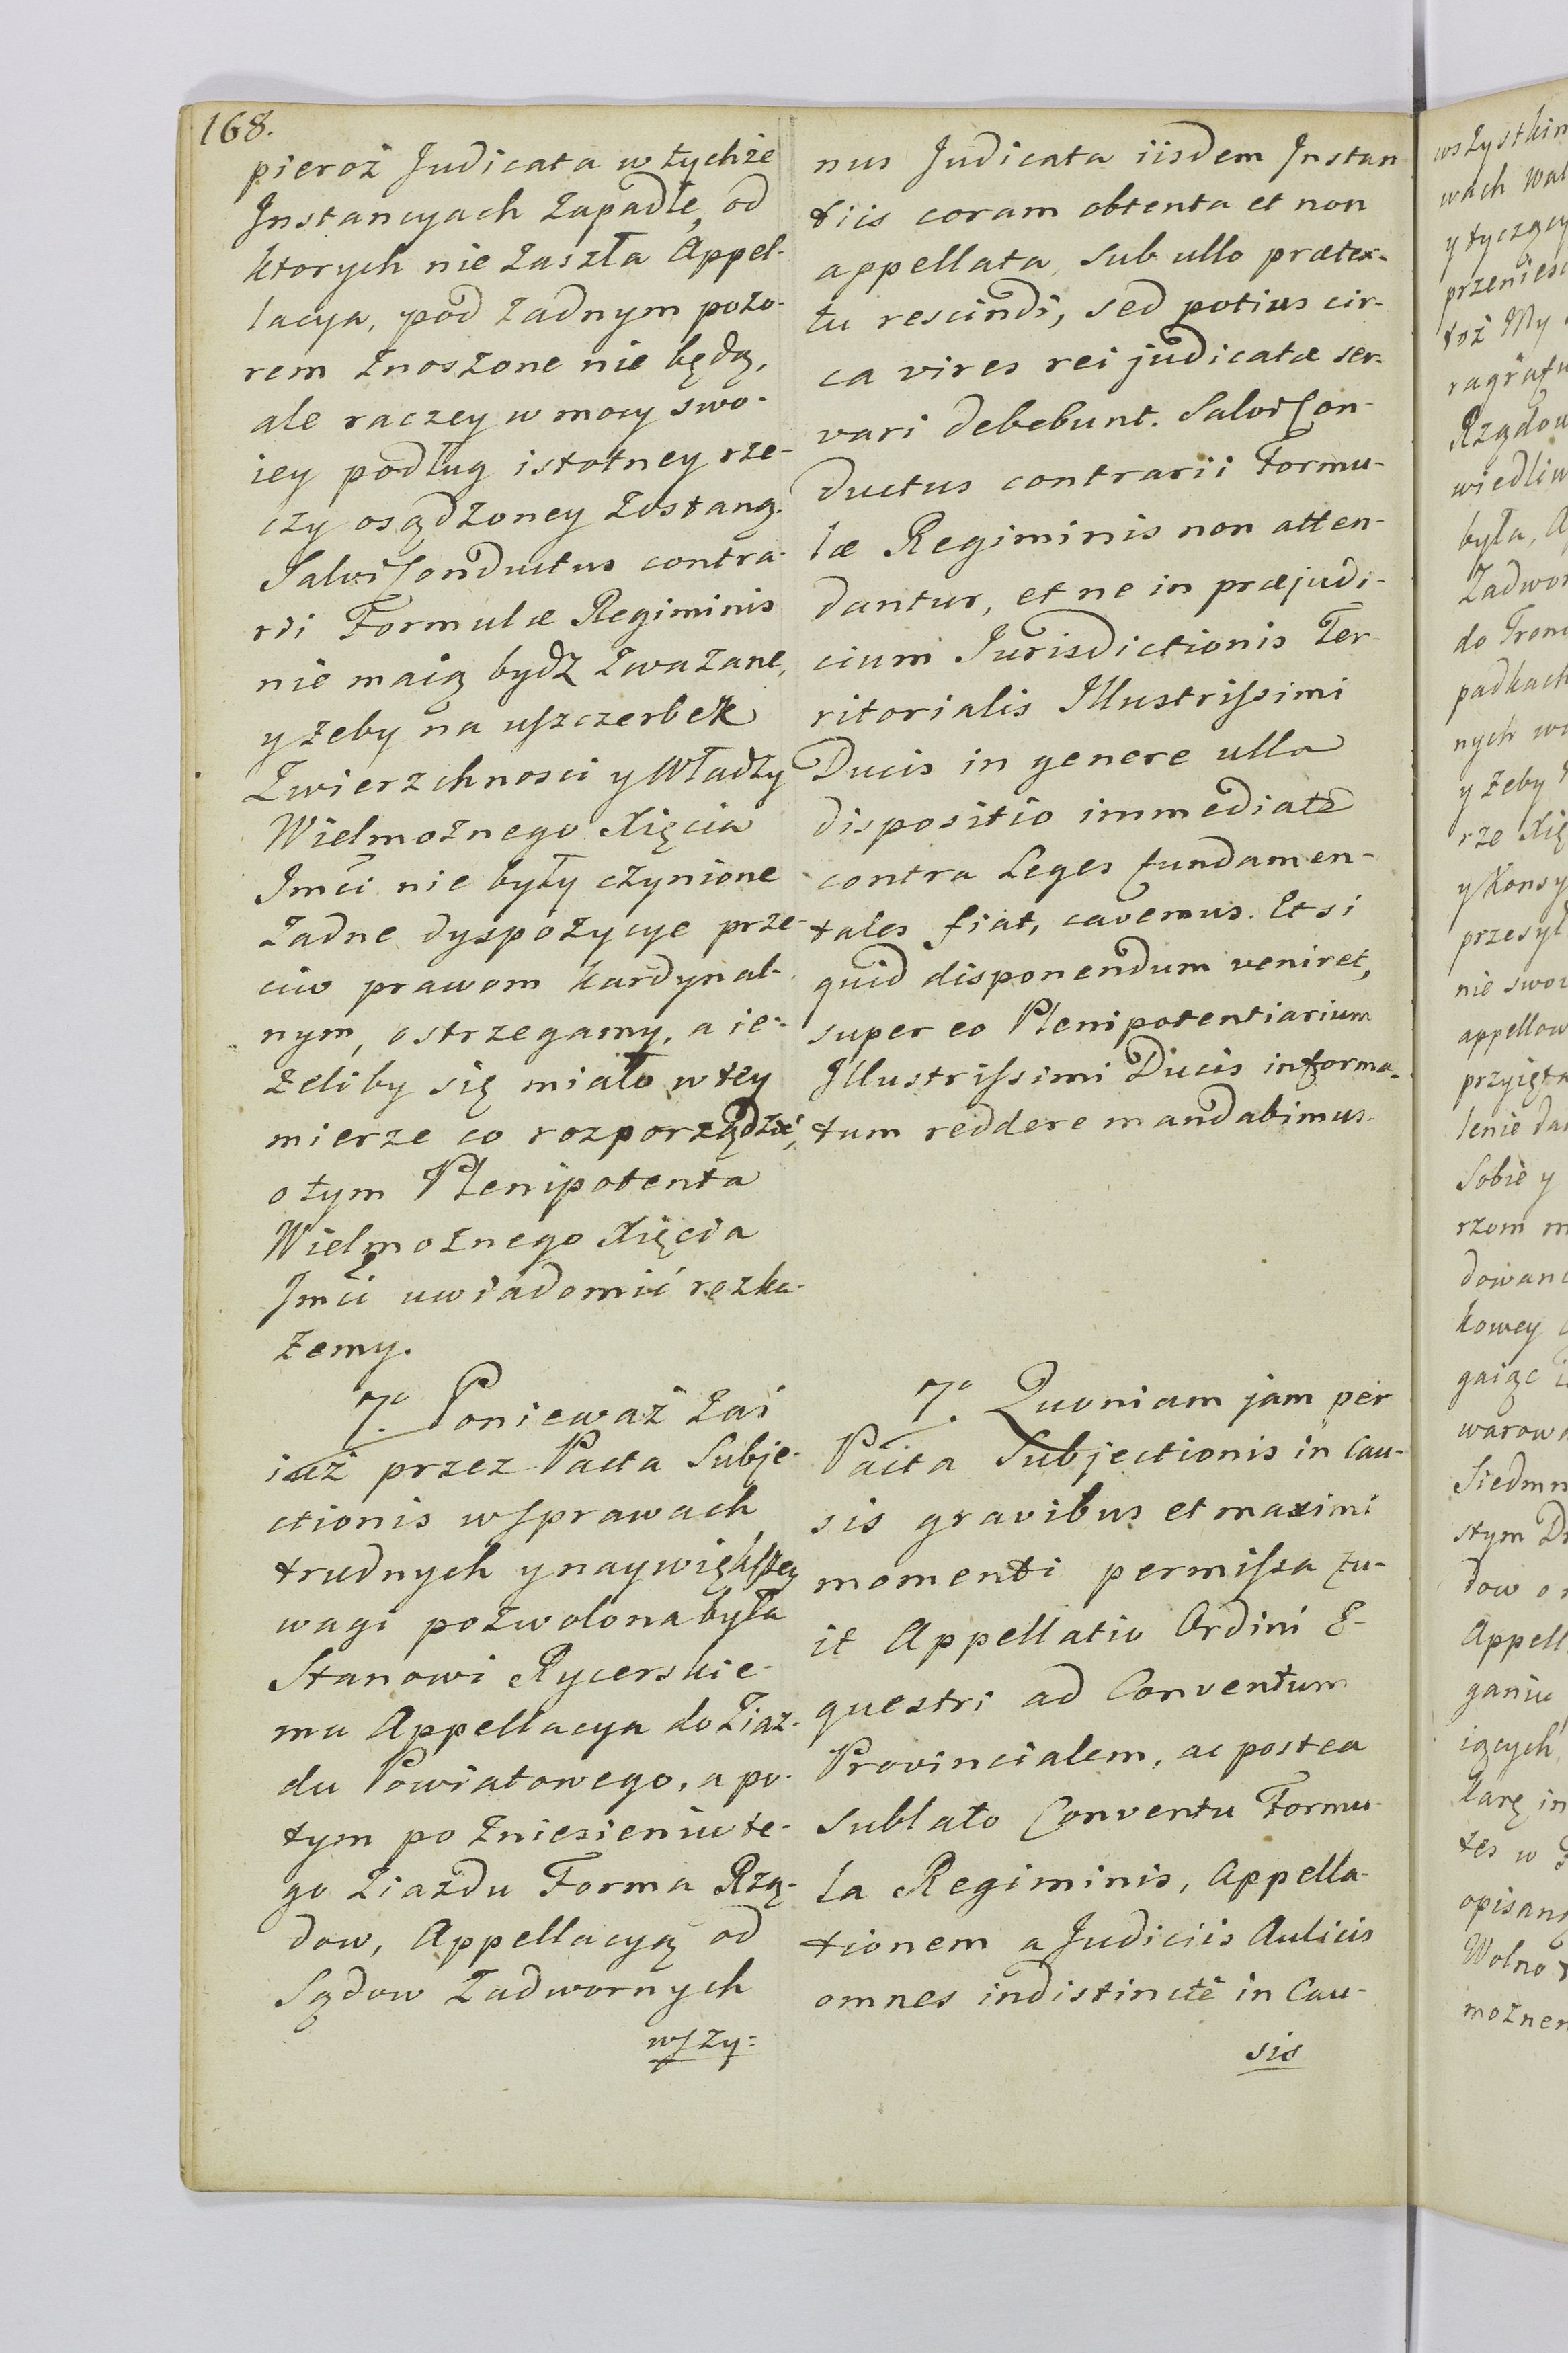 168.
pieroż Judicata w tychże
Instancyach zapadłe, od
ktorych nie zaszła Appel-
lacya, pod żadnym pozo-
rem znoszone nie będą,
ale raczey w mocy swo-
iey podług istotney rze-
czy osądzoney zostaną.
Salvi Conductus contra-
rii Formulæ Regiminis
nie maią bydz zważane,
y żeby na uszczerbek
Zwierzchnosci y Władzy
Wielmożnego Xięcia
Jmci nie były czynione
żadne dyspozycye prze-
ciw prawom kardynal-
nym, ostrzegamy, a ie-
żeliby się miało w tey
mierze co rozporządzić,
o tym Plenipotenta
Wielmożnego Xięcia
Jmci uwiadomić rozka-
żemy.
7o. Ponieważ zaś
iuż przez Pacta Subje-
ctionis w sprawach
trudnych y naywiększey
wagi pozwolona była
Stanowi Rycerskie-
mu Appellacya do Ziaz-
du Powiatowego, a po-
tym po zniesieniu te-
go Ziazdu Forma Rzą-
dow, Appellacyą od
Sądow Zadwornych
wszy-
nus Judicata iisdem Instan
tiis coram obtenta et non
appellata, sub ullo prætex-
tu rescindi, sed potius cir-
ca vires rei judicatæ ser-
vari debebunt. Salvi Con-
ductus contrarii Formu-
læ Regiminis non atten-
dantur, et ne in præjudi-
cium Jurisdictionis Ter-
ritorialis Illustrissimi
Ducis in genere ulla
dispositio immediate
contra Leges fundamen-
tales fiat, cavemus. Et si
quid disponendum veniret,
super eo Plenipotentiarium
Illustrissimi Ducis informa-
tum reddere mandabimus.
7o. Quoniam jam per
Pacta Subjectionis in Cau-
sis gravibus et maximi
momenti permissa fu-
it Appellatio Ordini E-
questri ad Conventum
Provincialem, ac postea
sublato Conventu Formu-
la Regiminis, Appella-
tionem a Judiciis Aulicis
omnes indistincte in Cau-
sis
wszystkim
wach wa
y tyczący
przenies
toż My
ragrafu
Rządow
wiedliw
była, A
Zadwor
do Tron
padkach
nych w
y żeby
rze Xię
y Konsy
przesył
nie swoi
appellow
przyięta
lenie da
Sobie y
rzom m
dowan
kowey
gaiąc i
warow
Siedmn
stym D
dow o
Appell
ganiu
iących
karę in
tes w
opisan
Wolno
możne